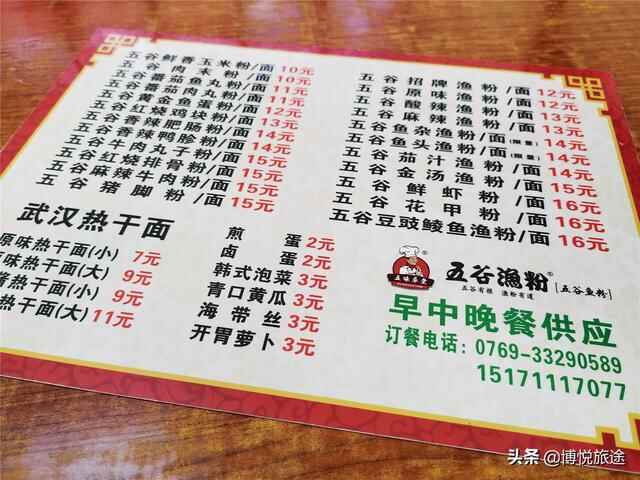 五谷鲜香玉米粉/面 10元
五谷肉末粉/面 10元
五谷番茄鱼丸粉/面 11元
五谷番茄肉丸粉/面 11元
五谷黄金鱼蛋粉/面 12元
五谷红烧鸡块粉/面 13元
五谷香辣肥肠粉/面 14元
五谷香辣鸭胗粉/面 14元
五谷牛肉丸子粉/面 15元
五谷红烧排骨粉/面 15元
五谷麻辣牛肉粉/面 15元
五谷猪脚粉/面 15元
五谷招牌渔粉/面 12元
五谷原味渔粉/面 12元
五谷酸辣渔粉/面 13元
五谷麻辣渔粉/面 13元
五谷鱼杂渔粉/面(限量) 14元
五谷鱼头渔粉/面(限量) 14元
五谷茄汁渔粉/面 14元
五谷金汤渔粉/面 15元
五谷鲜虾粉/面 16元
五谷花甲粉/面 16元
五谷豆豉鲮鱼渔粉/面 16元
武汉热干面
原味热干面(小) 7元
味热干面(大) 9元
热干面(小) 9元
热干面(大) 11元
煎蛋 2元
卤蛋 2元
韩式泡菜 3元
青口黄瓜 3元
海带丝 3元
开胃萝卜 3元
五谷渔粉 [五谷鱼粉]
五谷有根 渔粉有道
早中晚餐供应
订餐电话：0769-33290589
15171117077
头条 @博悦旅途